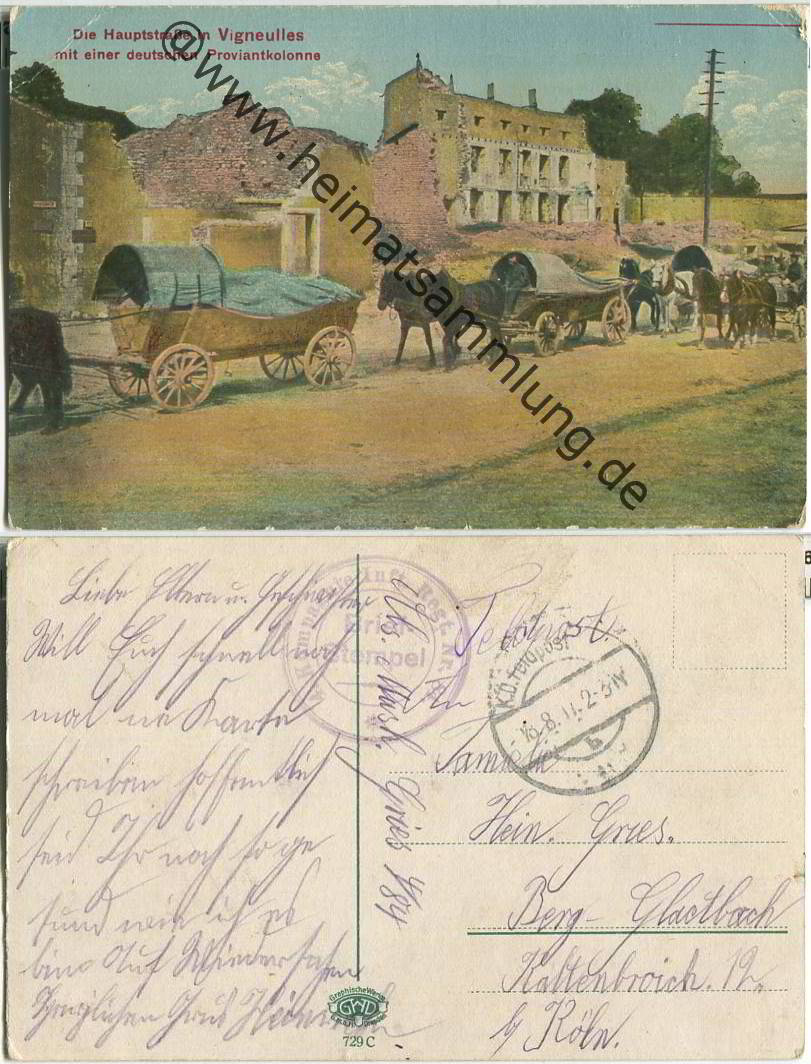 Die Hauptstraße in Vigneulles
mit einer deutschen Proviantkolonne
@www.heimatsammlung.de
Liebe Eltern u. Geschwister
Will Euch schnell noch
mal ne Karte
schreiben hoffentlich
seid Ihr noch so ge
sund wie ich es
bin. Auf Wiedersehen
Herzlichen Gruß Heinrich
Kompagnie Inft. Regt. Nr.
Brief
Stempel
Abs. Musk. Gries
Feldpost.
K.D. Feldpost
An
Familie
Hein. Gries.
Berg- Gladbach
Kaltenbroich. 12.
b/ Köln.
Graphische Werke
GWD
729 C